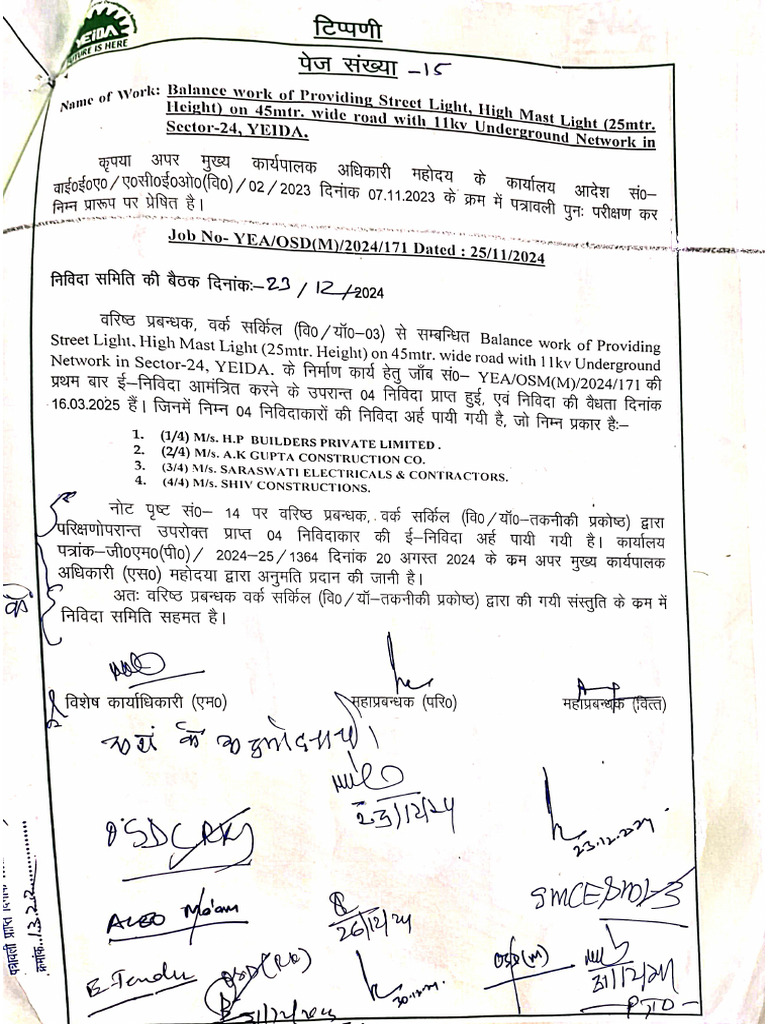 YEIDA
FUTURE IS HERE
टिप्पणी
पेज संख्या -15
Name of Work: Balance work of Providing Street Light, High Mast Light (25mtr.
Height) on 45mtr. wide road with 11kv Underground Network in
Sector-24, YEIDA.
कृपया अपर मुख्य कार्यपालक अधिकारी महोदय के कार्यालय आदेश सं०-
वाई०ई०ए०/ए०सी०ई०ओ०(वि०)/02/2023 दिनांक 07.11.2023 के क्रम में पत्रावली पुनः परीक्षण कर
निम्न प्रारूप पर प्रेषित है।
Job No- YEA/OSD(M)/2024/171 Dated : 25/11/2024
निविदा समिति की बैठक दिनांकः-23/12/2024
वरिष्ठ प्रबन्धक, वर्क सर्किल (वि०/यॉ०-03) से सम्बन्धित Balance work of Providing
Street Light, High Mast Light (25mtr. Height) on 45mtr. wide road with 11kv Underground
Network in Sector-24, YEIDA. के निर्माण कार्य हेतु जॉब सं०- YEA/OSM(M)/2024/171 की
प्रथम बार ई-निविदा आमंत्रित करने के उपरान्त 04 निविदा प्राप्त हुई, एवं निविदा की वैधता दिनांक
16.03.2025 हैं। जिनमें निम्न 04 निविदाकारों की निविदा अर्ह पायी गयी है, जो निम्न प्रकार है:-
1. (1/4) M/s. H.P BUILDERS PRIVATE LIMITED.
2. (2/4) M/s. A.K GUPTA CONSTRUCTION CO.
3. (3/4) M/s. SARASWATI ELECTRICALS & CONTRACTORS.
4. (4/4) M/s. SHIV CONSTRUCTIONS.
नोट पृष्ट सं०- 14 पर वरिष्ठ प्रबन्धक, वर्क सर्किल (वि०/यॉ०-तकनीकी प्रकोष्ठ) द्वारा
परिक्षणोपरान्त उपरोक्त प्राप्त 04 निविदाकार की ई-निविदा अर्ह पायी गयी है। कार्यालय
पत्रांक-जी०एम०(पी०)/ 2024-25/1364 दिनांक 20 अगस्त 2024 के क्रम अपर मुख्य कार्यपालक
अधिकारी (एस०) महोदया द्वारा अनुमति प्रदान की जानी है।
अतः वरिष्ठ प्रबन्धक वर्क सर्किल (वि०/यॉ-तकनीकी प्रकोष्ठ) द्वारा की गयी संस्तुति के क्रम में
निविदा समिति सहमत है।
विशेष कार्याधिकारी (एम०) महाप्रबन्धक (परि०) महाप्रबन्धक (वित्त)
23/12/24
OSD(RK)
23.12.2024
ACEO Ma'am
26/12/24
E-Tender
OSD(RK)
30.12.24
OSD(M)
31/12/24
PTO-
पत्रावली प्राप्ति दिनांक
क्रमांक..1322